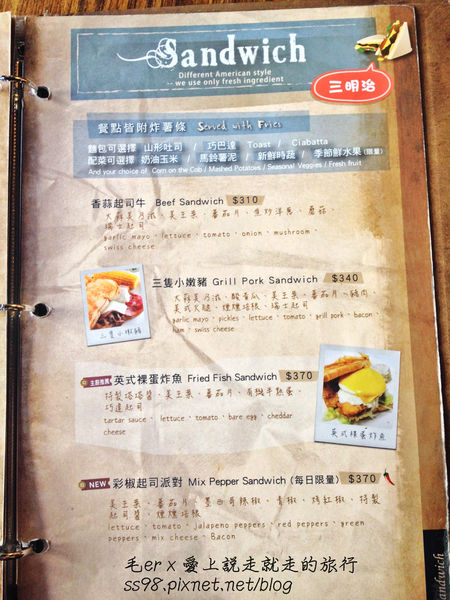 Sandwich
Different American style
-- we use only fresh ingredient
三明治
餐點皆附炸薯條 Served with Fries
麵包可選擇 山形吐司 / 巧巴達 Toast / Ciabatta
配菜可選擇 奶油玉米 / 馬鈴薯泥 / 新鮮時蔬 / 季節鮮水果(限量)
And your choice of Corn on the Cob / Mashed Potatoes / Seasonal Veggies / Fresh fruit
香蒜起司牛 Beef Sandwich $310
大蒜美乃滋、美生菜、番茄片、煎炒洋蔥、蘑菇、
瑞士起司
garlic mayo、lettuce、tomato、onion、mushroom、
swiss cheese
三隻小嫩豬 Grill Pork Sandwich $340
大蒜美乃滋、酸黃瓜、美生菜、番茄片、豬肉、
美式火腿、煙燻培根、瑞士起司
garlic mayo、pickles、lettuce、tomato、grill pork、bacon、
ham、swiss cheese
三隻小嫩豬
主廚推薦 英式裸蛋炸魚 Fried Fish Sandwich $370
特製塔塔醬、美生菜、番茄片、有機半熟蛋、
巧達起司
tartar sauce、lettuce、tomato、bare egg、cheddar
cheese
英式裸蛋炸魚
NEW 彩椒起司派對 Mix Pepper Sandwich (每日限量) $370
美生菜、番茄片、墨西哥辣椒、青椒、烤紅椒、特製
起司醬、煙燻培根
lettuce、tomato、jalapeno peppers、red peppers、green
peppers、mix cheese、Bacon
andwich
毛er x 愛上說走就走的旅行
ss98.pixnet.net/blog